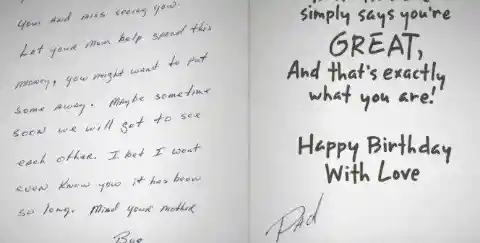 your and miss seeing you.
Let your mum help spend this
money, you might want to put
some away. Maybe sometime
soon we will get to see
each other. I bet I wont
even know you it has been
so long. Mind your mother
simply says you're
GREAT,
And that's exactly
what you are!
Happy Birthday
With Love
Dad